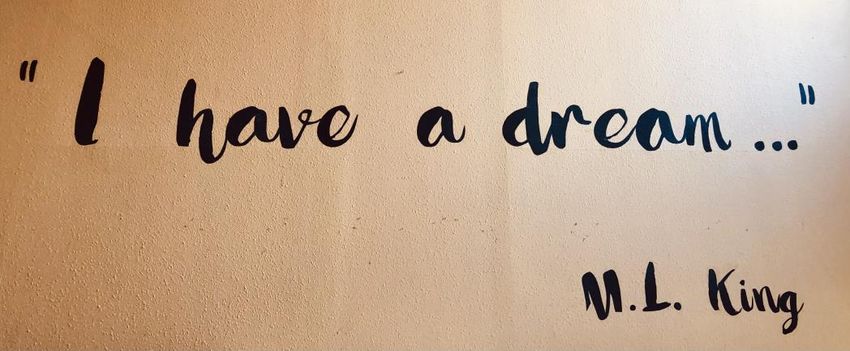 "I have a dream..."
M.L. King